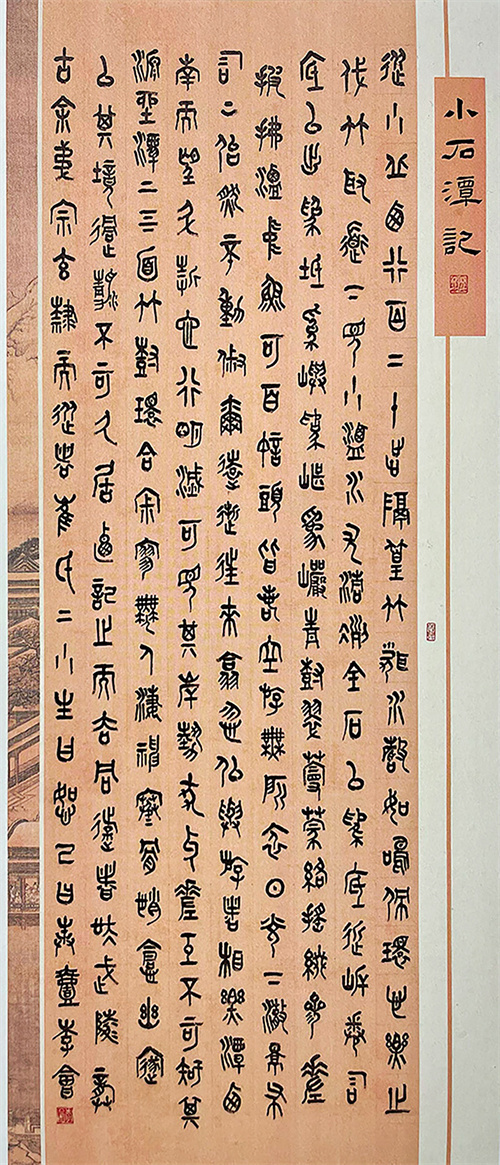 小石潭記
從小丘西行百二十步隔篁竹聞水聲如鳴佩環心樂之
伐竹取道下見小潭水尤清冽全石以為底近岸卷石
底以出為坻為嶼為嵁為巖青樹翠蔓蒙絡搖綴參差
披拂潭中魚可百許頭皆若空游無所依日光下澈影布
石上佁然不動俶爾遠逝往來翕忽似與游者相樂潭西
南而望斗折蛇行明滅可見其岸勢犬牙差互不可知其
源坐潭上四面竹樹環合寂寥無人淒神寒骨悄愴幽邃
以其境過清不可久居乃記之而去同遊者吳武陵龔
古余弟宗玄隸而從者崔氏二小生曰恕己曰奉壹李會